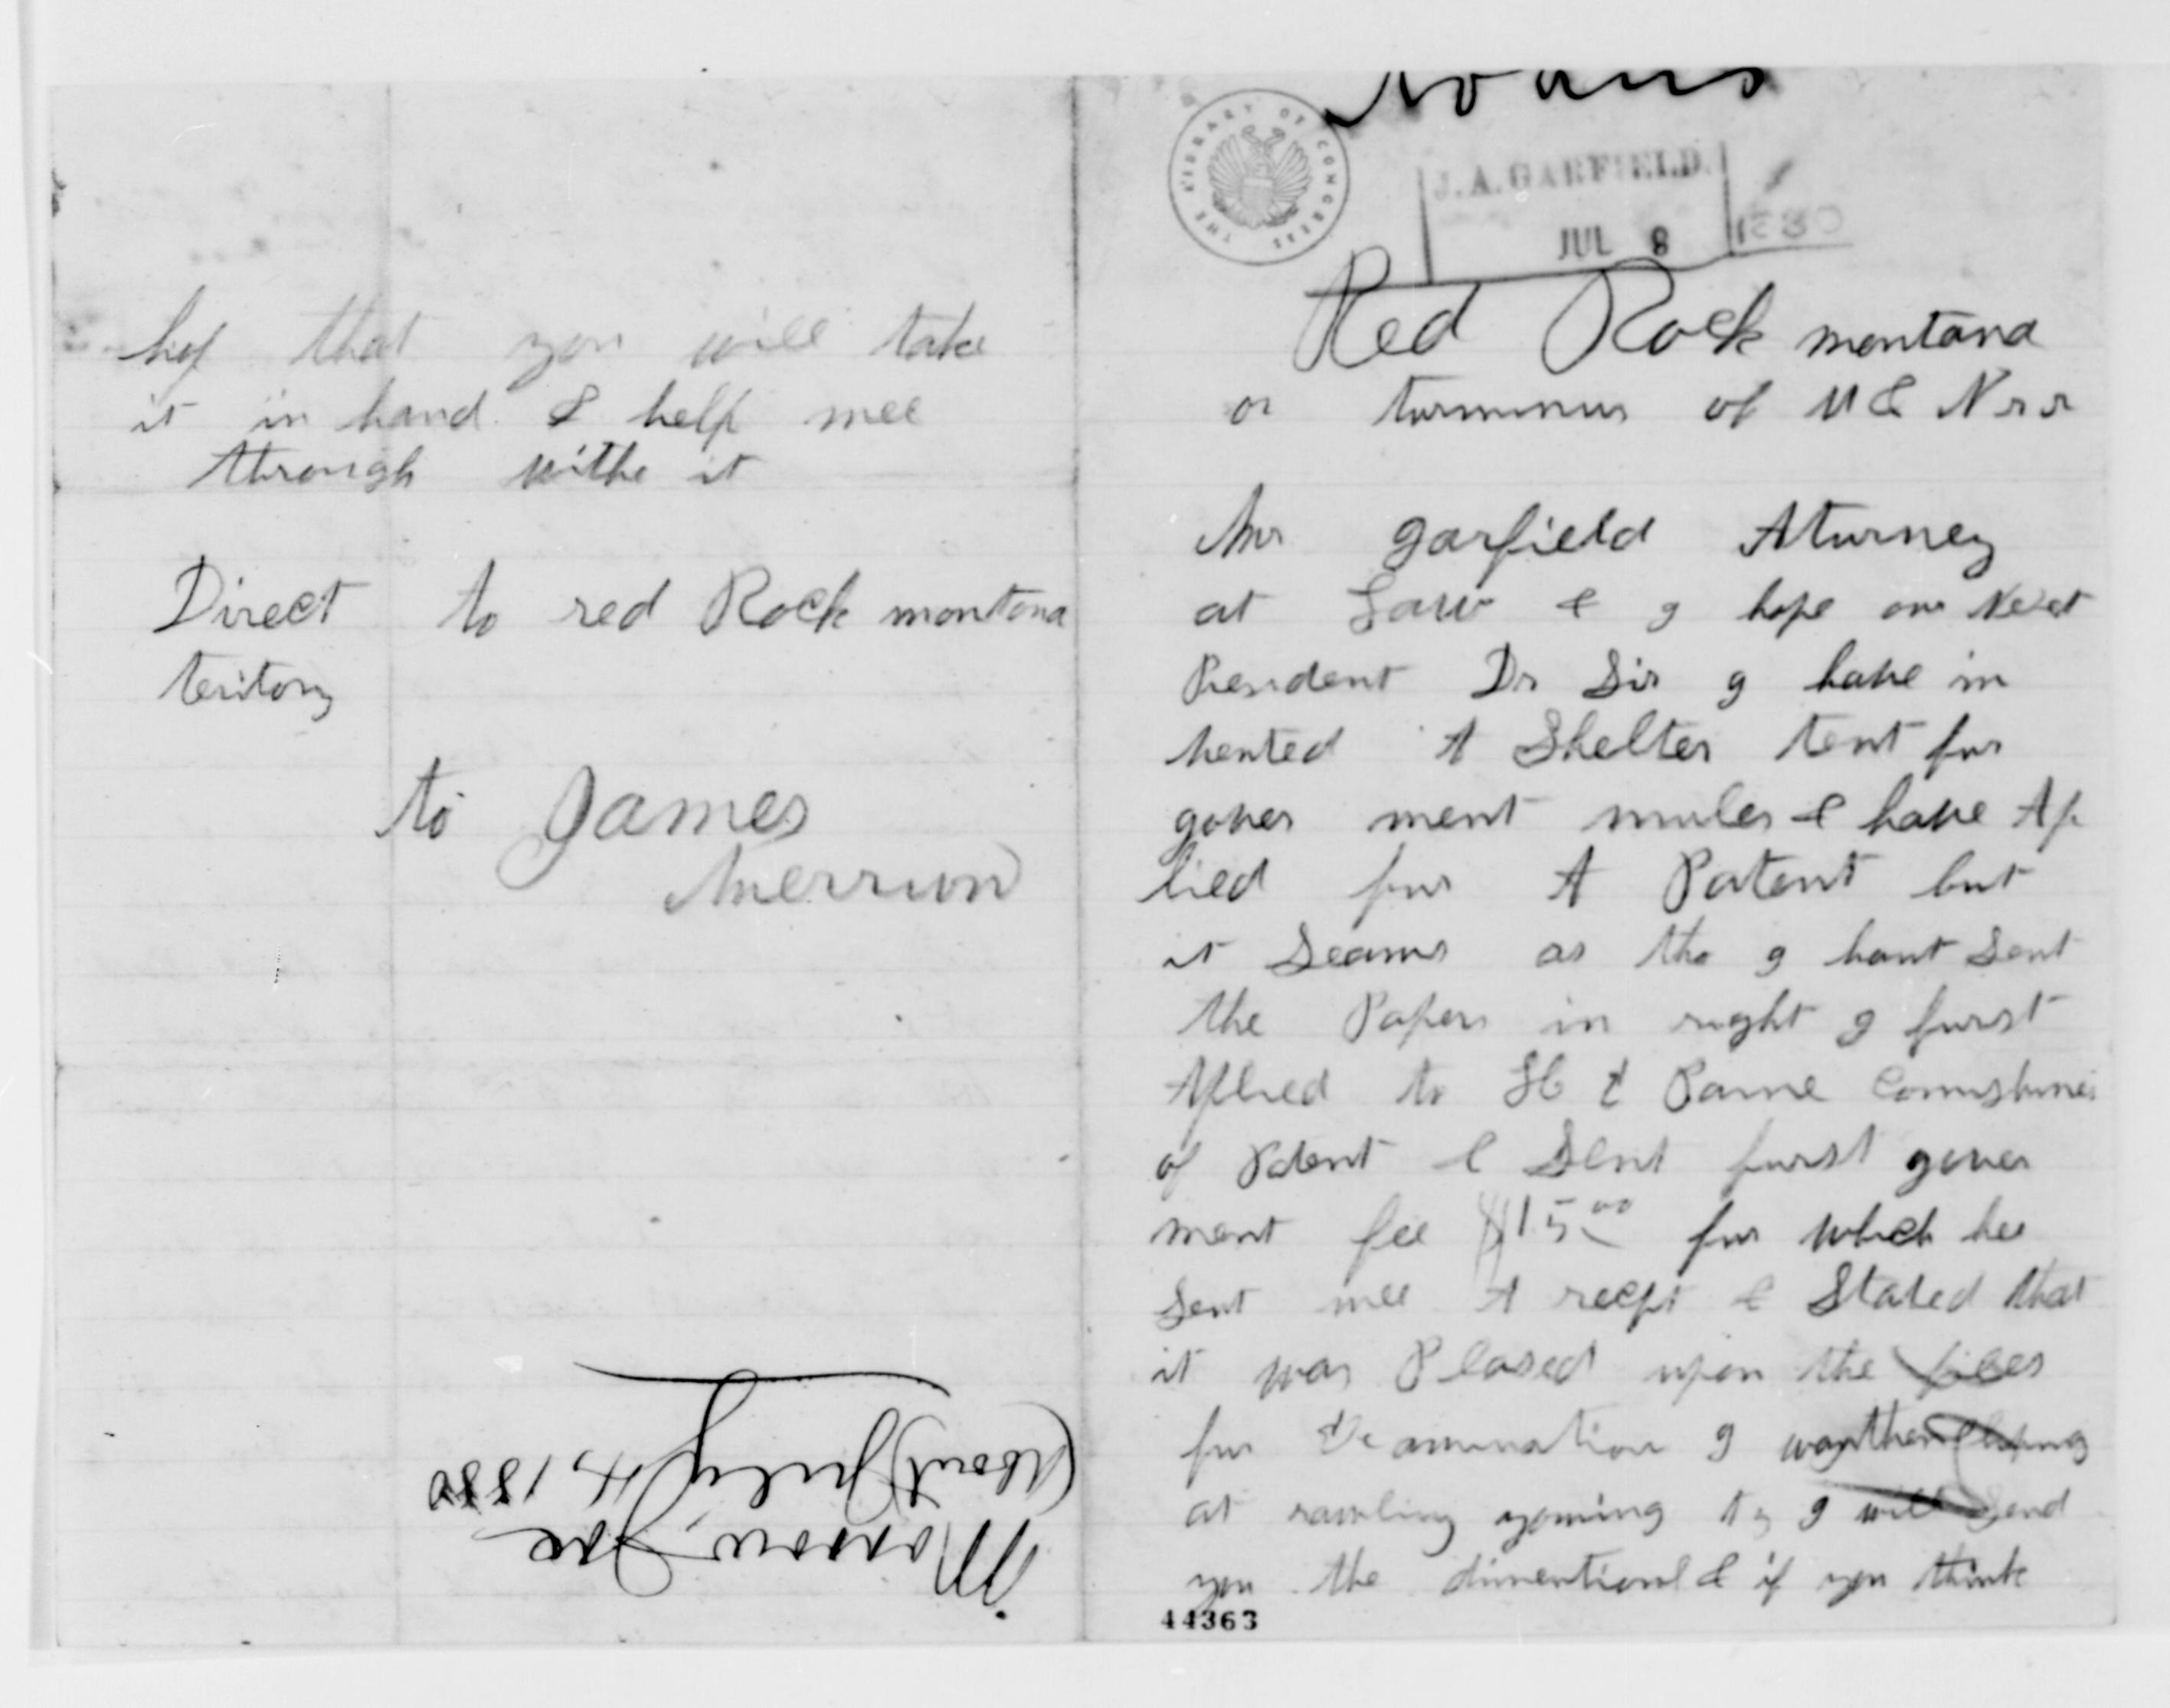 THE LIBRARY OF CONGRESS
J. A. GARFIELD.
JUL 8 1880
Red Rock montana
or turminus of U & N r r
Mr garfield Aturney
at Law & g hope our Next
President Dr Sir g have in
vented A Shelter tent fur
gover ment mules & have Ap
lied fur A Patent but
it Seams as tho g hant Sent
the Papers in right g furst
Aplied to H E Paine
of Patent & Sent furst gover
ment fee $15.00 fur which hee
sent mee A recpt & Stated that
it was Plased upon the files
fur Examination g
at rawling yoming ty g will Send
you the dimentions & if you think
44363
hop that you will take
it in hand & help mee
through withe it
Direct to red Rock montana
teritory
to James
Merrion
Morrow, Jas
(About July 4, 1880